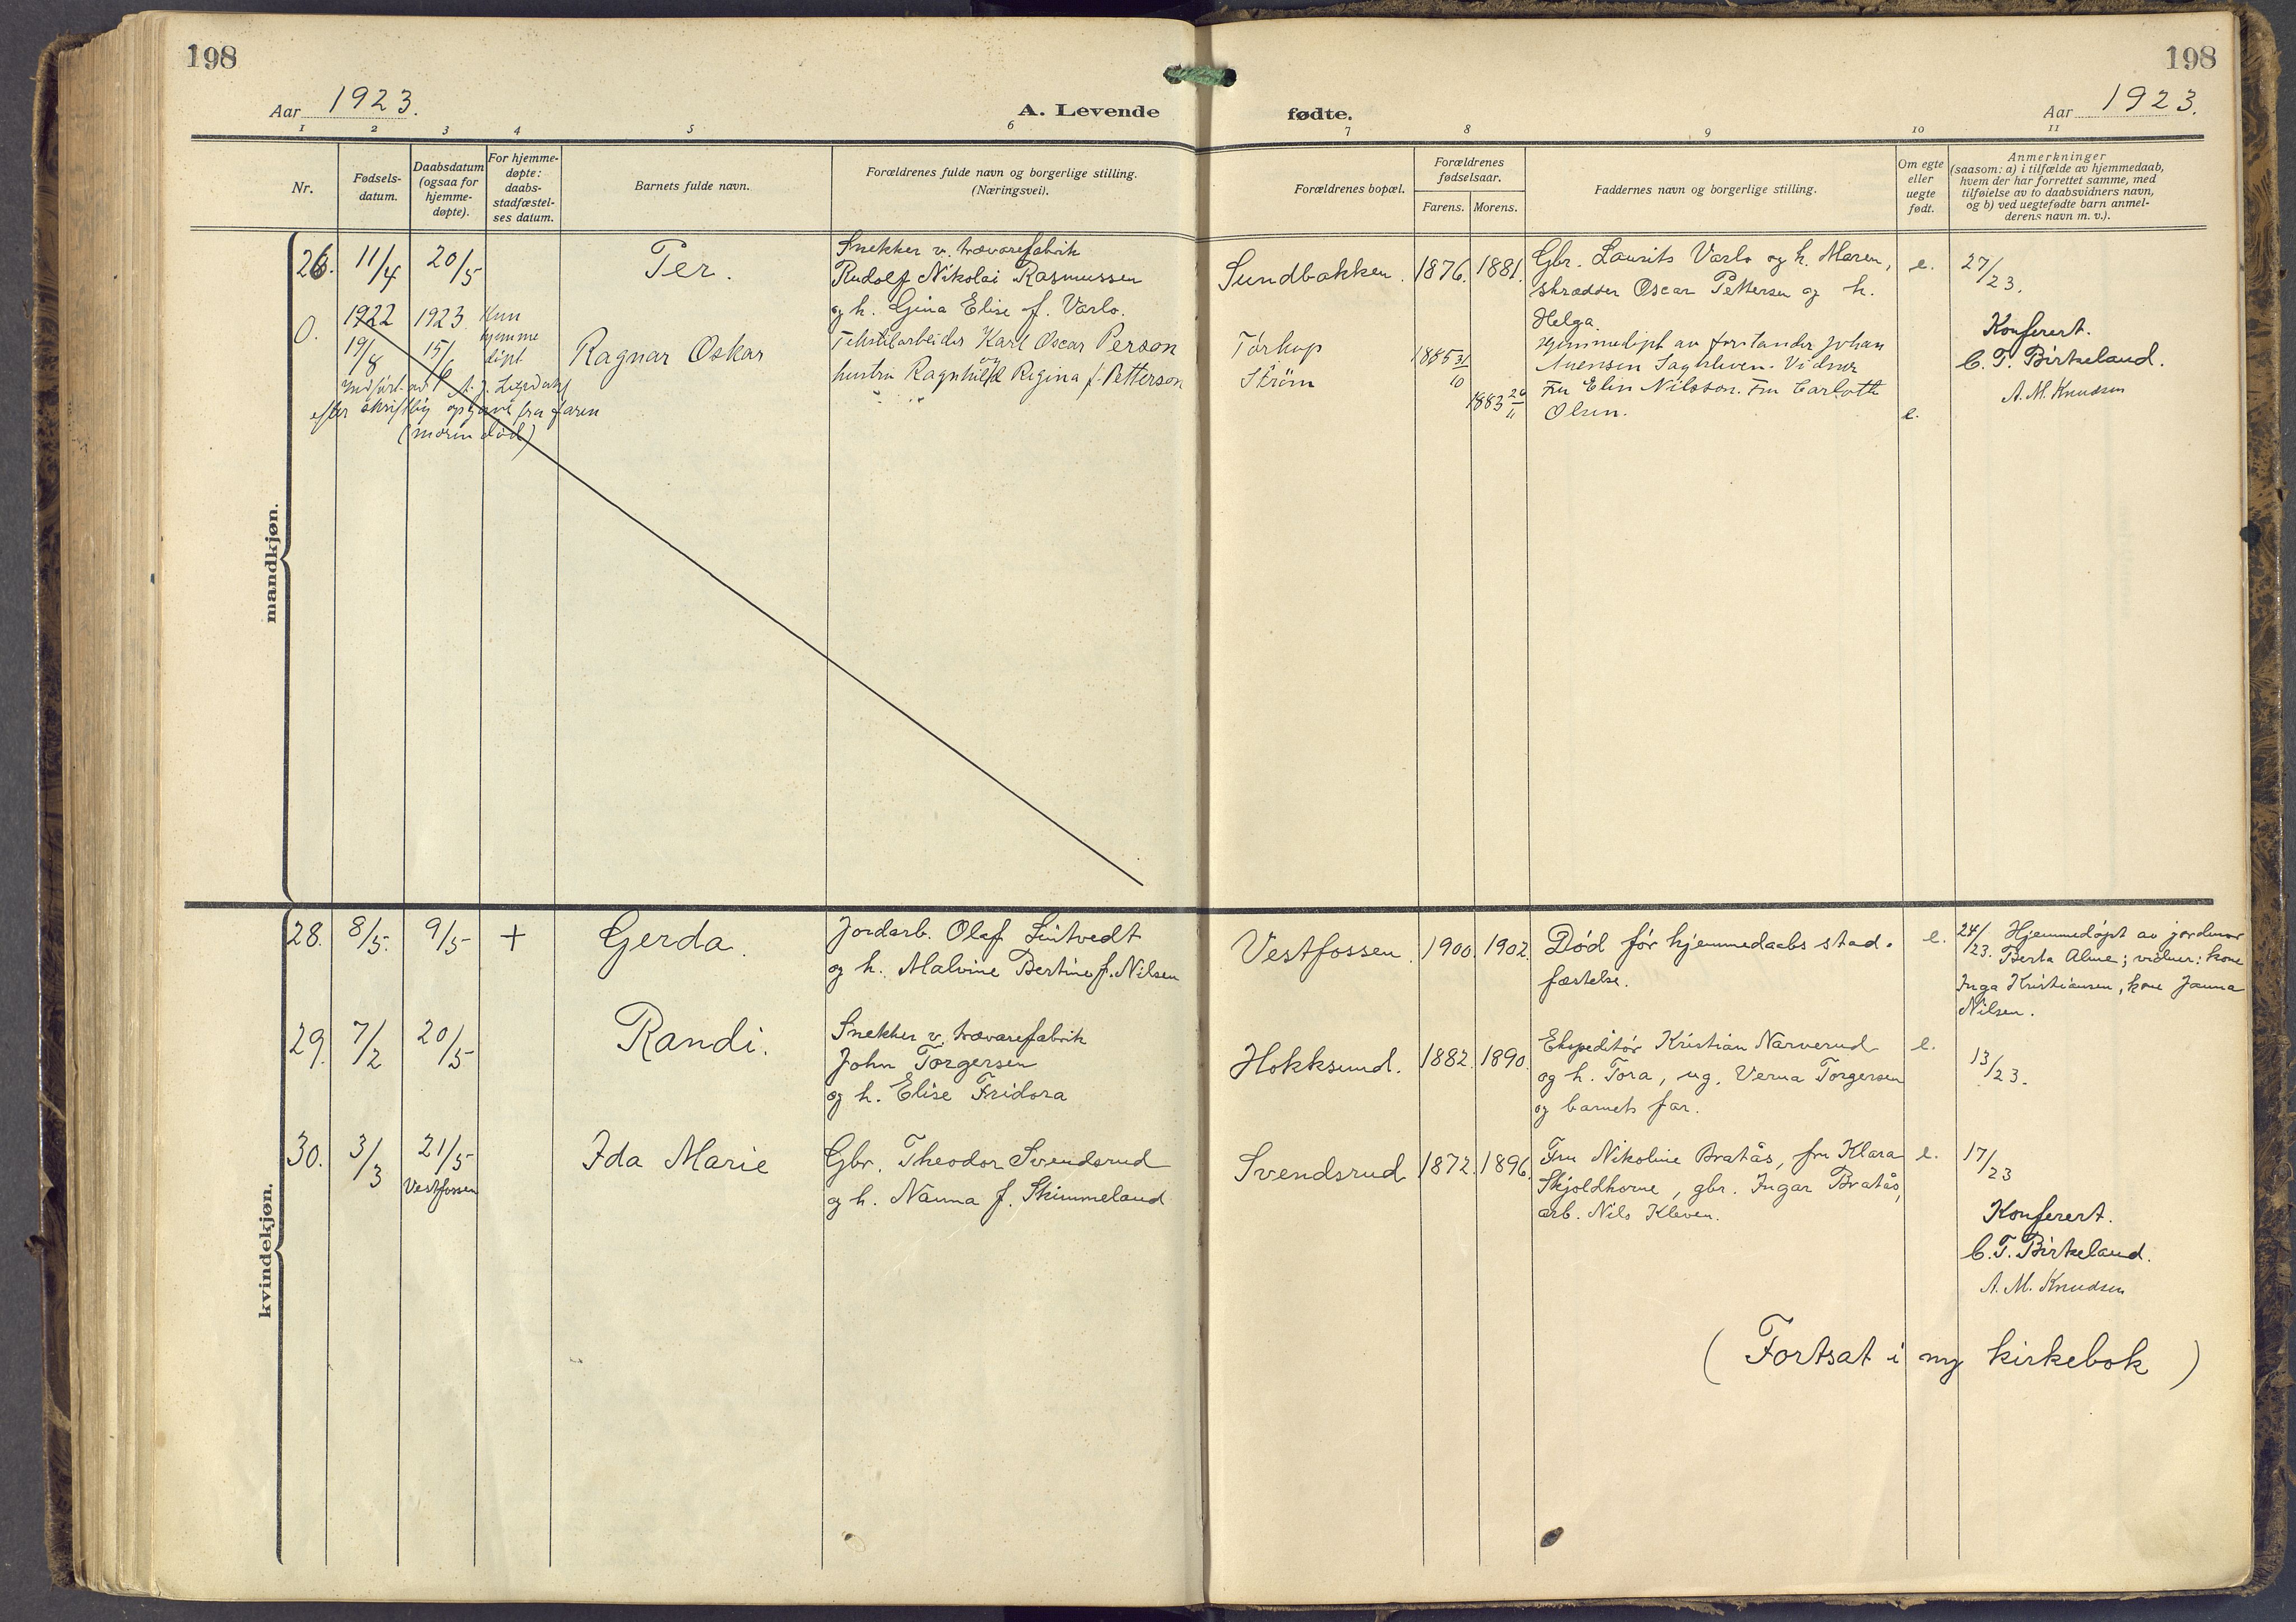 198
198
Aar 1923.
A. Levende
fødte.
Aar 1923.
1 2 3 4 5 6 7 8 9 10 11
Nr.
Fødsels-
datum.
Daabsdatum
(ogsaa for
hjemme-
døpte).
For hjemme-
døpte:
daabs-
stadfæstel-
ses datum.
Barnets fulde navn.
Forældrenes fulde navn og borgerlige stilling.
(Næringsvei).
Forældrenes bopæl.
Forældrenes
fødselsaar.
Farens. Morens.
Faddernes navn og borgerlige stilling.
Om egte
eller
uegte
født.
Anmerkninger
(saasom: a) i tilfælde av hjemmedaab,
hvem der har forrettet samme, med
tilføielse av to daabsvidners navn,
og b) ved uegtefødte barn anmel-
derens navn m. v.).
mandkjøn.
26. 11/4 20/5
Per.
Snekker v. trævarefabrik
Rudolf Nikolai Rasmussen
og h. Gina Elise f. Varlo.
Sundbakken. 1876. 1881.
Gbr. Laurits Varlo og h. Maren,
skrædder Oscar Pettersen og h.
Helga.
e.
27/23.
0. 1922 19/8
1923 15/6
Kun
hjemme
døpt
Indført av
efter skriftlig opgave fra faren
(moren død)
Ragnar Oskar
Tekstilarbeider Karl Oscar Person
og
hustru Ragnhild Regina f. Petterson
Torkop
Strøm
1885 31/10
1883 20/11
Hjemmedøpt av forstander Johan
Vidner
Fru Elin Nilsson. Fru Carlotte
Olsen.
e.
Konferert.
C. T. Birkeland.
A. M. Knudsen
kvindekjøn.
28. 8/5. 9/5 +
Gerda.
Jordarb. Olaf Sintvedt
og h. Malvine Bertine f. Nilsen
Vestfossen. 1900. 1902.
Død før hjemmedaabs stad-
fæstelse.
e.
24/23. Hjemmedøpt av jordmor
Berta Alme; vidner: kone
Inga Kristiansen, kone Janna
Nilsen.
29. 7/2 20/5
Randi.
Snekker v. trævarefabrik
John Torgersen
og h. Elise Fridora
Hokksund. 1882. 1890.
Ekspeditør Kristian Narverud
og h. Tora, ug. Verna Torgersen
og barnets far.
e.
13/23.
30. 3/3 21/5
Vestfossen
Ida Marie
Gbr. Theodor Svendsrud
og h. Nanna f. Skimmeland
Svendsrud 1872. 1896.
Fru Nikoline Bratås, fru Klara
Skjoldhorne, gbr. Ingar Bratås,
arb. Nils Kleven.
e.
17/23
Konferert.
C. T. Birkeland.
A. M. Knudsen
(Fortsat i ny kirkebok)